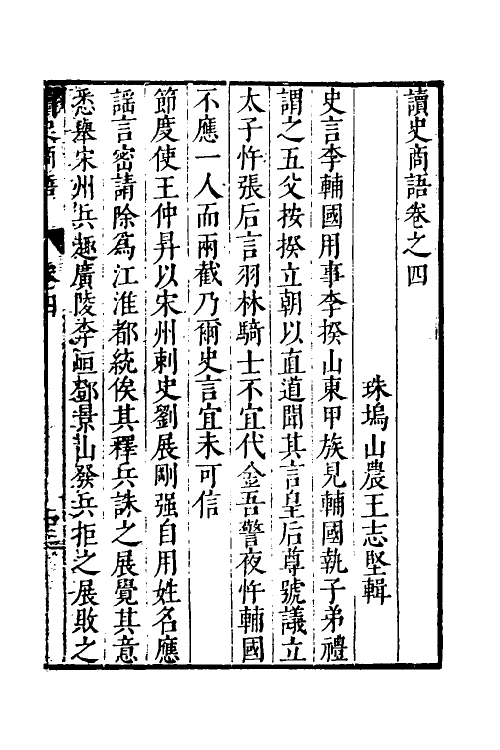 讀史商語卷之四
珠塢山農王志堅輯
史言李輔國用事李揆山東甲族見輔國執子弟禮
謂之五父按揆立朝以直道聞其言皇后尊號議立
太子忤張后言羽林騎士不宜代金吾警夜忤輔國
不應一人而兩截乃爾史言宜未可信
節度使王仲昇以宋州刺史劉展剛强自用姓名應
謠言密請除爲江淮都統俟其釋兵誅之展覺其意
悉舉宋州兵趣廣陵李峘鄧景山發兵拒之展敗之
讀史商語
卷四